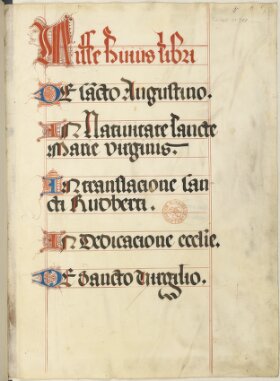 Misse huius libri
De sancto Augustino.
In Natiuitate sancte
Marie virginis.
In translacione san
cti Rudberti.
In Dedicacione ecclie.
De sancto Virgilio.